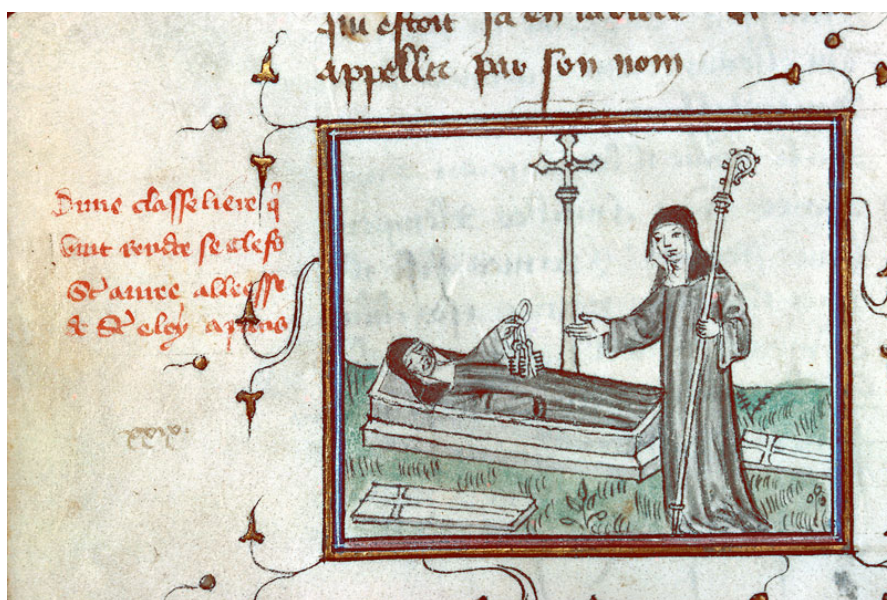 qui estoit ja en
appeller par son nom
Dune classeliere q̃
vint rendre se clefs
St auree abbesse
de St eloy a paris
xxix.